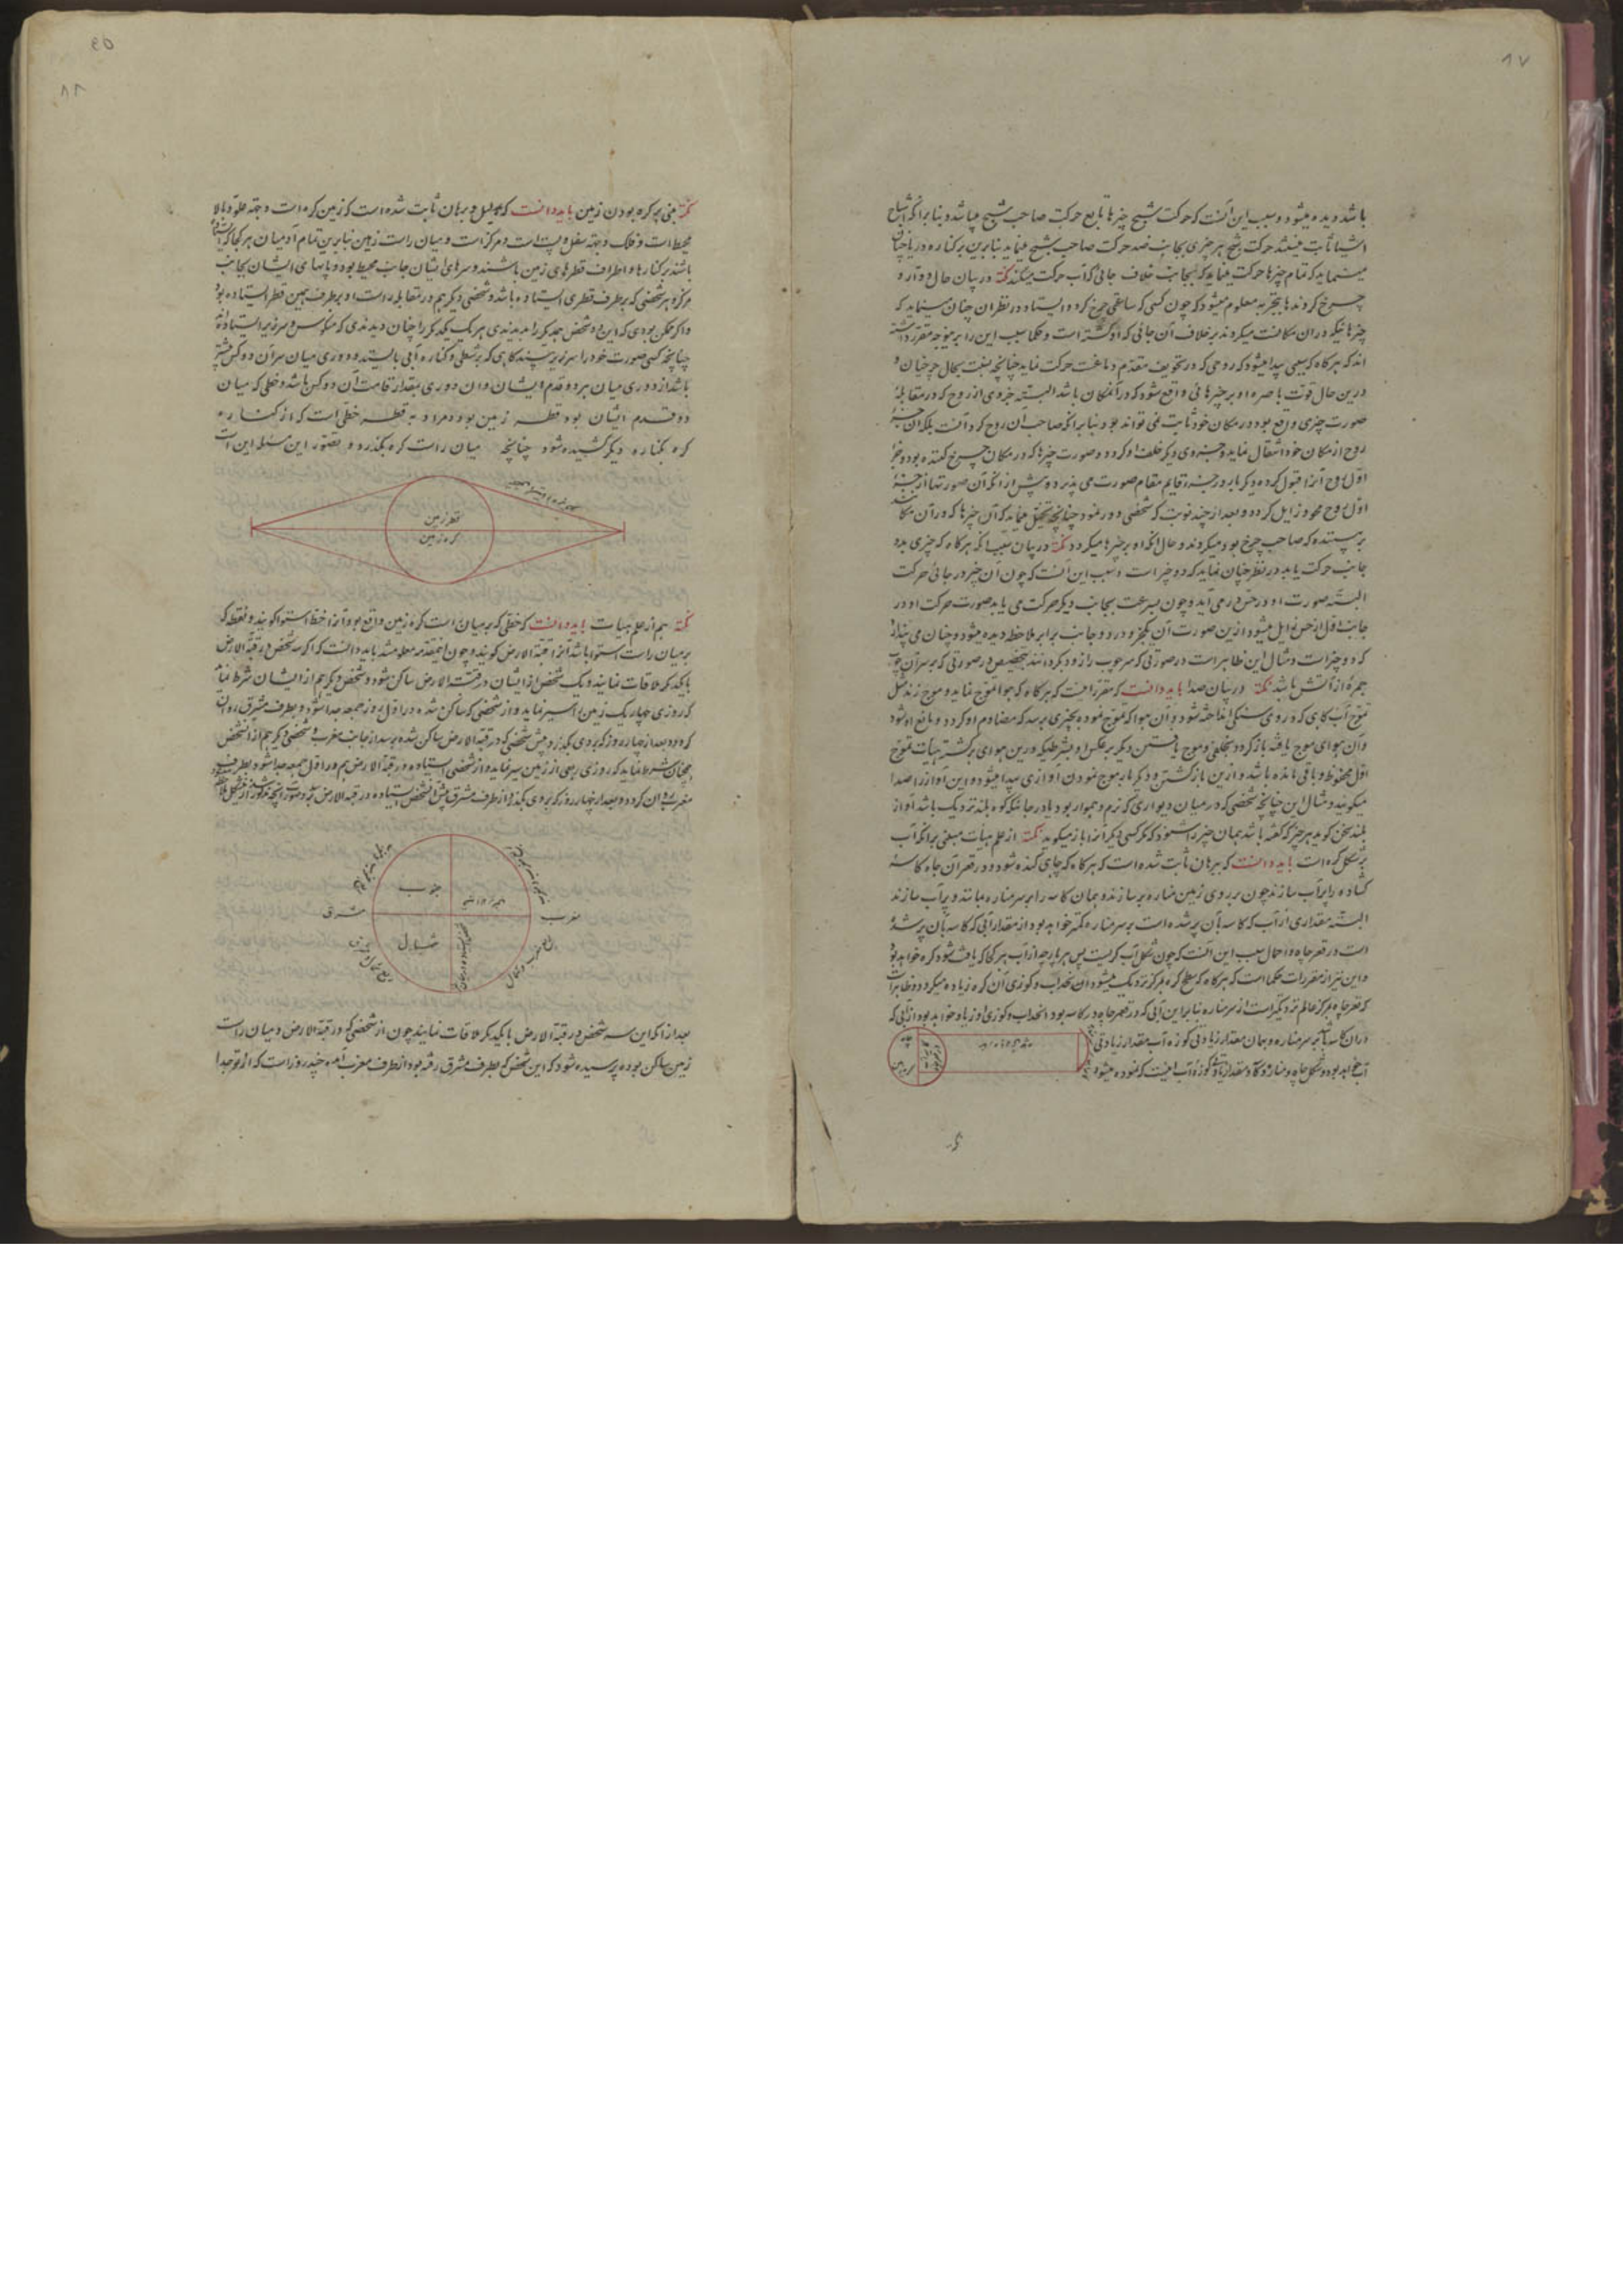 ۸۷
باشد دیده میشود و سبب این آنست که حرکت شبح چیزها تابع حرکت صاحب شبح میباشد و بنابر آنکه اشباح
اشیا ثابت نیستند حرکت شبح هر چیزی بجانب ضد حرکت صاحب شبح مینماید بنابرین بر کناره دریا چنان
مینماید که تمام چیزها حرکت مینماید که بجانب خلاف جائی که آب حرکت میکند نکته در بیان حال دوار و
چرخ کردن بتجربه معلوم میشود که چون کسی که ساعتی چرخ کرد و ایستاد در نظر آن چنان مینماید که
چیزهائیکه در آن مکانست میگردند بر خلاف آن جائی که او گشته است و حکما سبب این را برینوجه مقرر داشته
اند که هرگاه که سببی پیدا میشود که روحی که در تجویف مقدم دماغست حرکت نماید چنانچه نسبت بحال چرخیان و
درین حال قوت باصره او بر چیزهائی واقع شود که در آنمکان باشد البته جزوی از روح که در مقابله
صورت چیزی واقع بود در مکان خود ثابت نمی تواند بود بنابر آنکه صاحب آن روح گردانست بلکه آن جزء
روح از مکان خود انتقال نماید و جزوی دیگر خلف او گردد و صورت چیزها که در مکان چرخ کننده بود و جزء
اول روح آنرا قبول کرده دیگر باره در جزء قایم مقام صورت می پذیرد پیش از آنکه آن صورتها از جزء
اول روح محو و زایل گردد و بعد از چند نوبت که شخصی دور نمود چنانچه تخیل مینماید که آن چیزها که در آن مکانند
برپستنده که صاحب چرخ بود میگردند و حال آنکه او بر چیزها میگردد نکته در بیان سبب آنکه هرگاه که چیزی بدو
جانب حرکت یابد در نظر چنان نماید که دو چیز است و سبب این آنست که چون آن چیز در جائی حرکت
البته صورت او در حس در می آید و چون بسرعت بجانب دیگر حرکت می یابد صورت حرکت او در
جانب اول از حس زایل میشود ازین صورت آن یکچیز در دو جانب برابر ملاحظه دیده میشود و چنان می پندارد
که دو چیز است و مثال این ظاهر است در صورتی که سر چوب را زود بگردانند بتخصیص در صورتی که بر سر آن چوب
جمره از آتش باشد نکته در بیان صدا باید دانست که مقرر اینست که هرگاه که هوا تموج نماید و موج زند مثل
تموج آب گاهی که در وی سنگی انداخته شود و آن هوا که تموج نموده بچیزی برسد که مصادم او گردد و مانع او شود
و آن هوای موج یافته باز گردد بخلفی و موج یافتن دیگر بر عکس او بشرطیکه درین هوای برگشته هیأت تموج
اول محفوظ و باقی مانده باشد و ازین باز گشتن و دیگر بار موج نمودن آوازی پیدا میشود و این آواز را صدا
میگویند و مثال این چنانچه شخصی که در میان دیواری که نرم و هموار بود یا در جائیکه کوه بلند نزدیک باشد آواز
بلند سخن گوید هر چیز که گفته باشد همان چیز را شنود که گویا کسی دیگر آنرا باز میگوید نکته از علم هیأت مبنی بر آنکه آب
بر شکل کره است باید دانست که ببرهان ثابت شده است که هرگاه که چاهی کنده شود و در قعر آن چاه کاسه
گشاده را پر آب سازند چون بر روی زمین مناره بر سازند و همان کاسه را بر سر مناره بمانند و پر آب سازند
البته مقداری از آب که کاسه بآن پر شده است بر سر مناره کمتر خواهد بود از مقدار آبی که کاسه بآن پر شده
است در قعر چاه و احتمال سبب این آنست که چون شکل آب کریست پس هر پارچه از آب هر کجا که یافت شود کره خواهد بود
و این نیز از مقررات حکما است که هرگاه که سطح کره بمرکز نزدیک میشود آن نحداب و کوژی آن کره زیاده میگردد و ظاهر است
که قعر چاه بمرکز عالم نزدیکتر است از سر مناره بنابراین آبی که در قعر چاه در کاسه بود انحداب و کوژی او زیاد خواهد بود از آبی که
در آن کاسه بر سر مناره و همان مقدار زیادتی کوژه آب مقدار زیادتی
آب خواهد بود و شکل چاه و مناره و کاسه و مقدار زیادتی کوژه آب اینست که نموده میشود
۸۸
نکته مبنی بر کره بودن زمین باید دانست که بدلیل و برهان ثابت شده است که زمین کره است و جهة علو و بالا
محیط است و فلک و جهة سفل و پست است و مرکز است و میان راست زمین بنابرین تمام آدمیان هر کجا که ایستاده
باشند بر کنارها و اطراف قطرهای زمین باشند و سرهای ایشان جانب محیط بود و پاهای ایشان بجانب
مرکز و هر شخصی که بر طرف قطری ایستاده باشد و شخصی دیگر هم در مقابله راست او بر طرف همین قطر ایستاده بود
و اگر ممکن بودی که این دو شخص همدیگر را بدیدندی هر یک یکدیگر را چنان دیدندی که معکوس و سرزیر ایستاده اند
چنانچه کسی صورت خود را سرزیر بیند گاهی که بر شطی و کناره آبی بایستد و دوری میان سر آن دو کس بیشتر
باشد از دوری میان هر دو قدم ایشان و آن دوری بمقدار قامت آن دو کس باشد و خطی که میان
دو قدم ایشان بود قطر زمین بود و مراد به قطر خطی است که از کناره
کره بکناره دیگر کشیده شود چنانچه میان راست کره بگذرد و تصور این مسئله این است
قطر زمین
کره زمین
نکته هم از علم هیأت باید دانست که خطی که بر میان راست کره زمین واقع بود آنرا خط استوا گویند و نقطه که
بر میان راست استوا باشد آنرا قبة الارض گویند و چون اینمقدمه معلوم شد باید دانست که اگر سه شخص در قبة الارض
با یکدیگر ملاقات نمایند و یک شخص از ایشان در قبة الارض ساکن شود و شخص دیگر هم از ایشان شرط نماید
که روزی چهار یک زمین را سیر نماید و از شخصی که ساکن شده در اول روز جمعه جدا شود و بطرف مشرق روان
گردد و بعد از چهار روز که بروی بگذرد پیش شخصی که در قبة الارض ساکن شده برسد از جانب مغرب و شخصی دیگر هم از آنشخص
همچنان شرط نماید که روزی ربعی از زمین سیر نماید و از شخصی ایستاده در قبة الارض هم در اول جمعه جدا شود و بطرف
مغرب روان گردد و بعد از چهار روز که بروی بگذرد از طرف مشرق پیش آنشخص ایستاده در قبة الارض رسد
جنوب
شمال
مشرق
مغرب
بعد از آنکه این سه شخص در قبة الارض با یکدیگر ملاقات نمایند چون از شخصی که در قبة الارض و میان راست
زمین ساکن بوده پرسیده شود که این شخص که بطرف مشرق رفته بود از طرف مغرب آمده چند روز است که از تو جدا